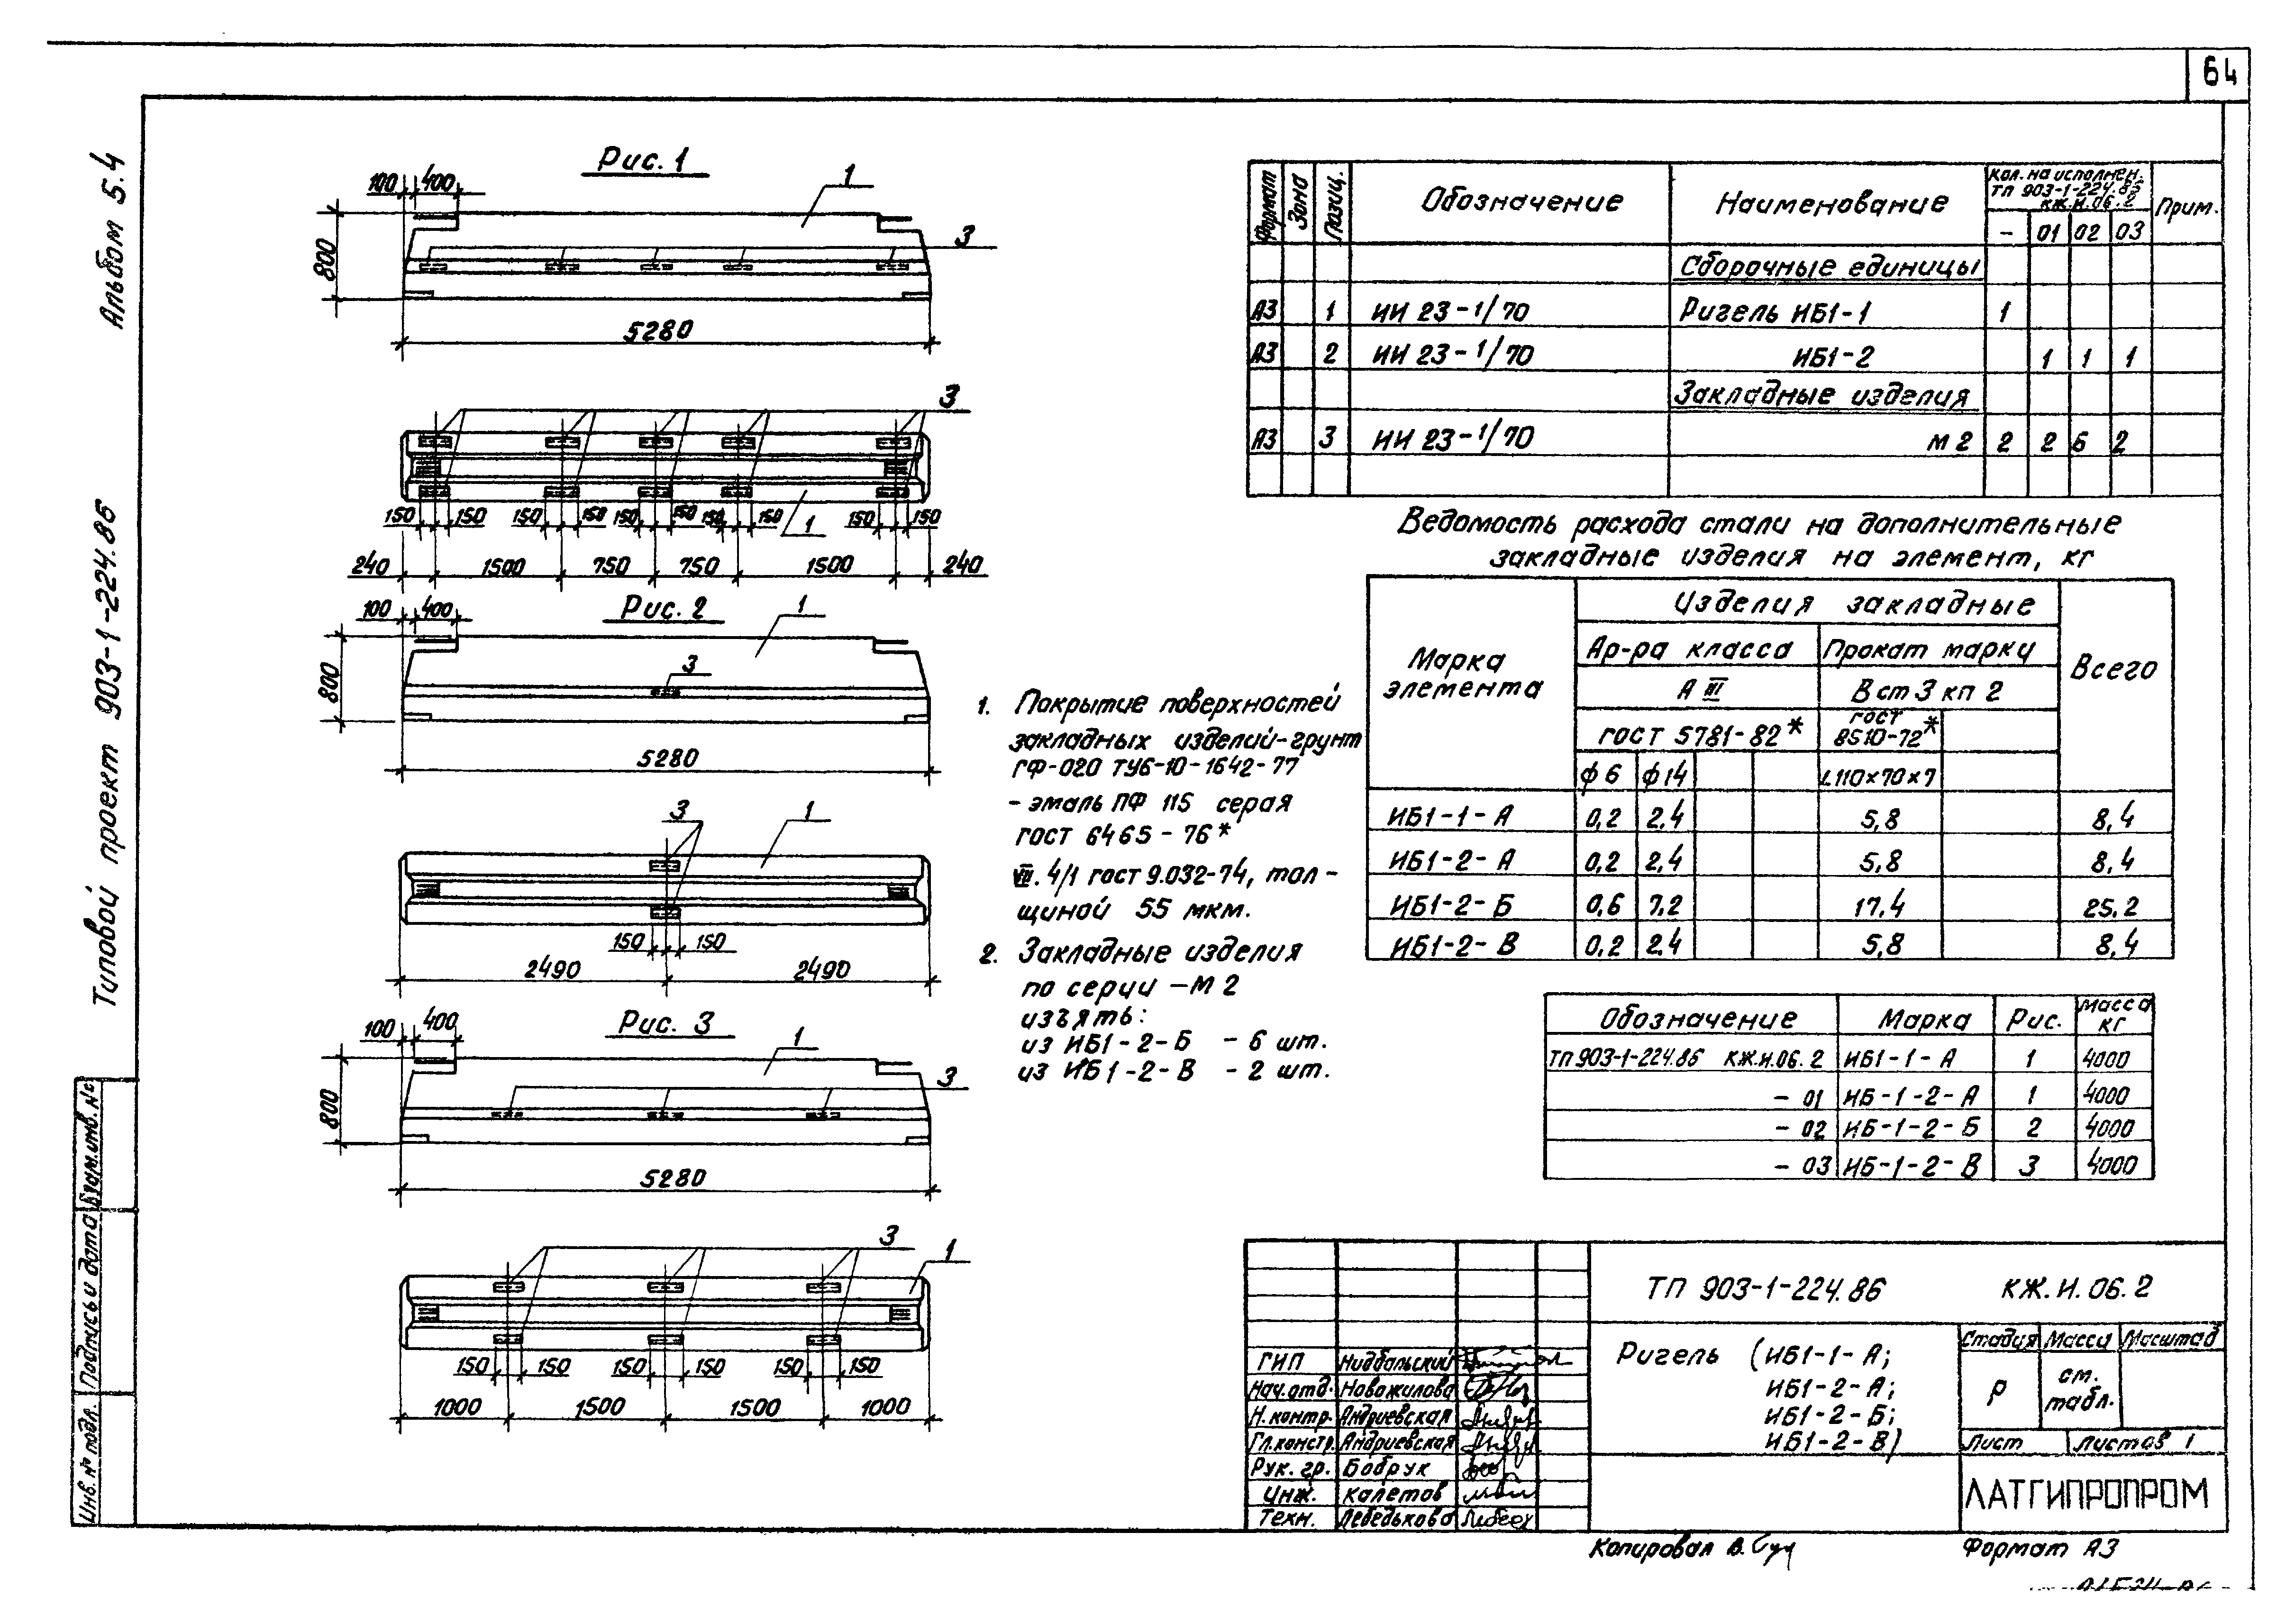 64
Альбом 5.4
Типовой проект 903-1-224.86
Инв. № подл. Подпись и дата Взам.инв. №
Рис. 1
100 400
1
3
800
5280
3
150 150 150 150 150 150 150 150 150 150
1
240 1500 750 750 1500 240
Рис. 2
100 400
1
3
800
5280
3 1
150 150
2490 2490
Рис. 3
100 400
1
3
800
5280
3
1
150 150 150 150 150 150
1000 1500 1500 1000
1. Покрытие поверхностей
закладных изделий-грунт
ГФ-020 ТУ6-10-1642-77
- эмаль ПФ 115 серая
ГОСТ 6465-76*
VII. 4/1 ГОСТ 9.032-74, тол-
щиной 55 мкм.
2. Закладные изделия
по серии -М 2
изъять:
из ИБ1-2-Б - 6 шт.
из ИБ1-2-В - 2 шт.
Формат Зона Позиц. Обозначение Наименование Кол. на исполнен. ТП 903-1-224.86 КЖ.И.06.2 Прим.
- 01 02 03
Сборочные единицы
А3 1 ИИ 23-1/70 Ригель ИБ1-1 1
А3 2 ИИ 23-1/70 ИБ1-2 1 1 1
Закладные изделия
А3 3 ИИ 23-1/70 М 2 2 2 6 2
Ведомость расхода стали на дополнительные
закладные изделия на элемент, кг
Марка элемента Изделия закладные Всего
Ар-ра класса Прокат марки
А III В ст 3 кп 2
ГОСТ 5781-82* ГОСТ 8510-72*
ф 6 ф 14 L110×70×7
ИБ1-1-А 0,2 2,4 5,8 8,4
ИБ1-2-А 0,2 2,4 5,8 8,4
ИБ1-2-Б 0,6 7,2 17,4 25,2
ИБ1-2-В 0,2 2,4 5,8 8,4
Обозначение Марка Рис. Масса кг
ТП 903-1-224.86 КЖ.И.06.2 ИБ1-1-А 1 4000
- 01 ИБ-1-2-А 1 4000
- 02 ИБ-1-2-Б 2 4000
- 03 ИБ-1-2-В 3 4000
ТП 903-1-224.86 КЖ.И.06.2
Ригель (ИБ1-1-А;
ИБ1-2-А;
ИБ1-2-Б;
ИБ1-2-В)
Стадия Масса Масштаб
Р см. табл.
Лист Листов 1
ЛАТГИПРОПРОМ
ГИП Нидбальский
Нач.отд. Новожилова
Н.контр. Андриевская
Гл.констр. Андриевская
Рук. гр. Бобрук
Инж. Калетов
Техн. Лебедькова
Копировал В.
Формат А3